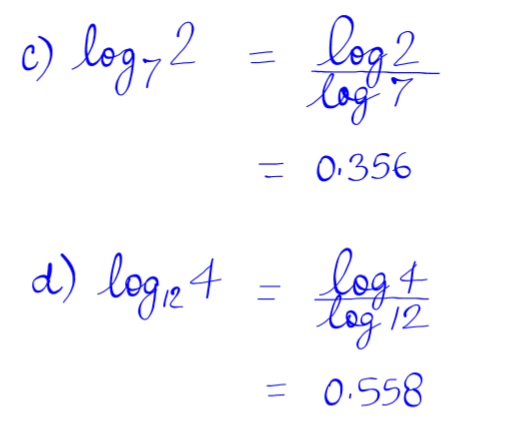 c) log₇2 = log2/log7
= 0.356
d) log₁₂4 = log4/log12
= 0.558